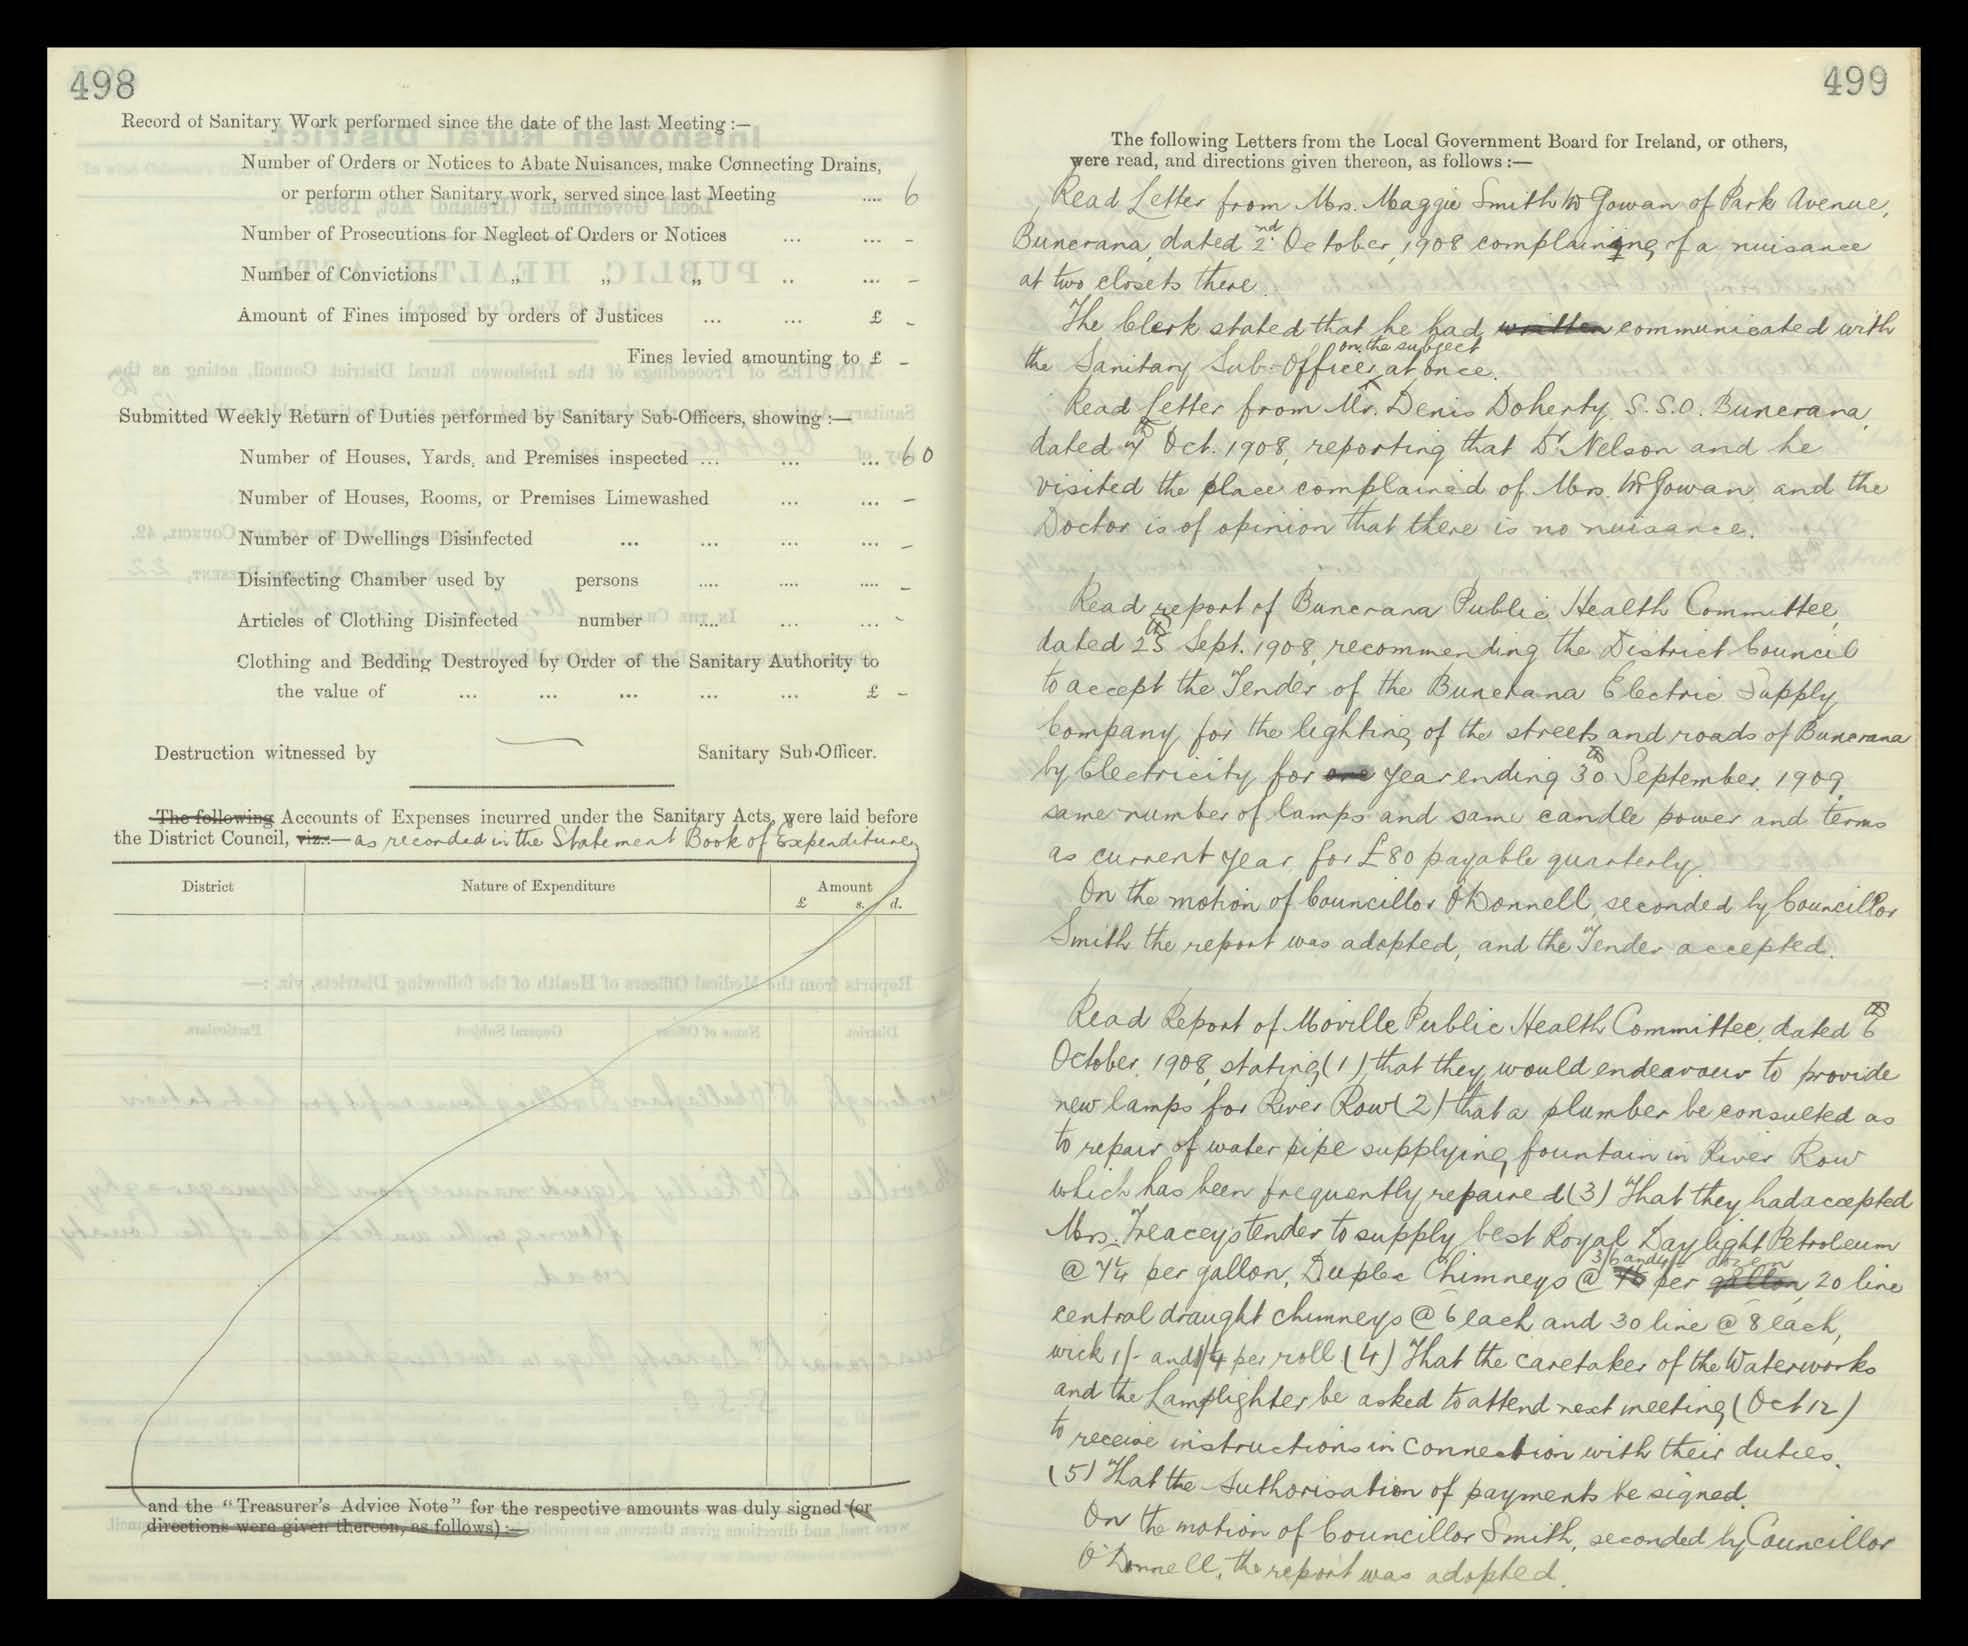 498
Record of Sanitary Work performed since the date of the last Meeting :—
Number of Orders or Notices to Abate Nuisances, make Connecting Drains,
or perform other Sanitary work, served since last Meeting .... 6
Number of Prosecutions for Neglect of Orders or Notices ... ... -
Number of Convictions „ „ „ .. ... -
Amount of Fines imposed by orders of Justices ... ... £ -
Fines levied amounting to £ -
Submitted Weekly Return of Duties performed by Sanitary Sub-Officers, showing :—
Number of Houses, Yards, and Premises inspected ... ... ... 60
Number of Houses, Rooms, or Premises Limewashed ... ... -
Number of Dwellings Disinfected ... ... ... ... -
Disinfecting Chamber used by persons .... .... .... -
Articles of Clothing Disinfected number .... ... ... -
Clothing and Bedding Destroyed by Order of the Sanitary Authority to
the value of ... ... ... ... ... £ -
Destruction witnessed by Sanitary Sub-Officer.
The following Accounts of Expenses incurred under the Sanitary Acts, were laid before
the District Council, viz.:— as recorded in the Statement Book of Expenditure
District Nature of Expenditure Amount
£ s. d.
and the "Treasurer's Advice Note" for the respective amounts was duly signed (or
directions were given thereon, as follows) :—
499
The following Letters from the Local Government Board for Ireland, or others,
were read, and directions given thereon, as follows :—
Read Letter from Mrs. Maggie Smith McGowan of Park Avenue,
Buncrana, dated 2nd October, 1908 complaining of a nuisance
at two closets there.
The Clerk stated that he had written communicated with
the Sanitary Sub-Officer on the subject at once.
Read Letter from Mr. Denis Doherty, S.S.O. Buncrana,
dated 7th Oct. 1908, reporting that Dr Nelson and he
visited the place complained of Mrs. McGowan and the
Doctor is of opinion that there is no nuisance.
Read report of Buncrana Public Health Committee,
dated 25th Sept. 1908, recommending the District Council
to accept the Tender of the Buncrana Electric Supply
Company, for the lighting of the streets and roads of Buncrana
by Electricity for one year ending 30th September, 1909,
same number of lamps and same candle power and terms
as current year, for £80 payable quarterly.
On the motion of Councillor O'Donnell, seconded by Councillor
Smith the report was adopted, and the Tender accepted.
Read Report of Moville Public Health Committee, dated 6th
October, 1908, stating (1) that they would endeavour to provide
new lamps for River Row (2) that a plumber be consulted as
to repair of water pipe supplying fountain in River Row
which has been frequently repaired (3) That they had accepted
Mrs. Treacey's tender to supply best Royal Daylight Petroleum
@ 7¼ per gallon, Duplex Chimneys @ 3/6 and 4/- per gallon dozen, 20 line
central draught chimneys @ 6 each and 30 line @ 8 each,
wick 1/- and 1/4 per roll (4) That the caretaker of the Waterworks
and the Lamplighter be asked to attend next meeting (Oct 12)
to receive instructions in connection with their duties.
(5) That the Authorisation of payments be signed.
On the motion of Councillor Smith, seconded by Councillor
O'Donnell, the report was adopted.